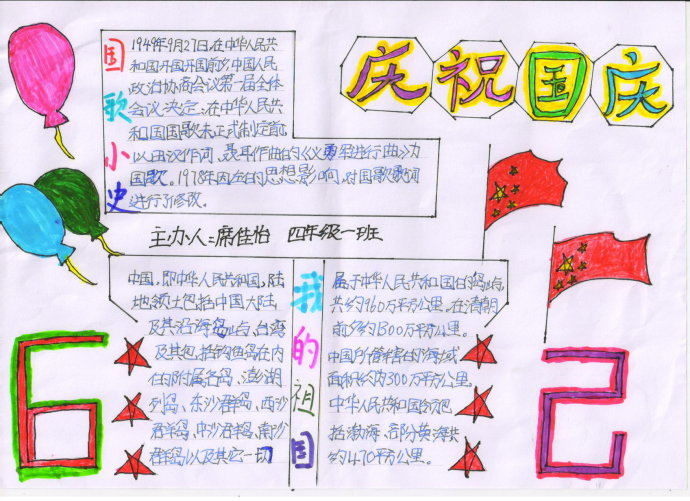 庆祝国庆
国歌小史
1949年9月27日,在中华人民共
和国开国开国前夕中国人民
政治协商会议第一届全体
会议决定,在中华人民共
和国国歌未正式制定前,
以田汉作词、聂耳作曲的《义勇军进行曲》为
国歌。1978年因左的思想影响,对国歌歌词
进行了修改。
主办人:席佳怡 四年级一班
我的祖国
中国,即中华人民共和国,陆
地领土包括中国大陆
及其沿海岛屿、台湾
及其包括钓鱼岛在内
的附属各岛、澎湖
列岛、东沙群岛、西沙
群岛、中沙群岛、南沙
群岛以及其它一切
属于中华人民共和国的岛屿,
共约960万平方公里。在清朝
前夕约1300万平方公里。
中国所管辖的海域
面积约为300万平方公里。
中华人民共和国领包
括渤海、部分黄海共
约470平方公里。
62